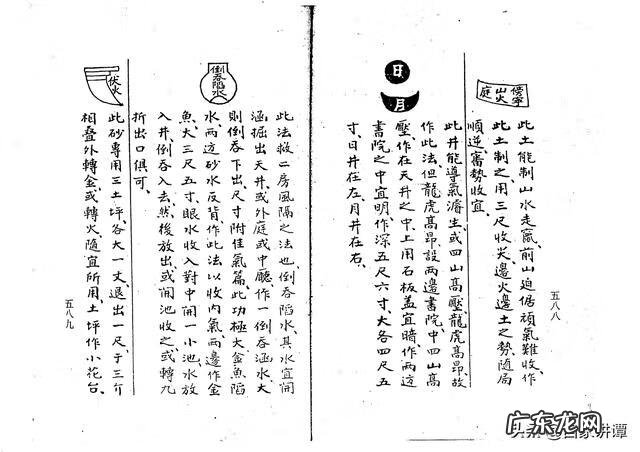 山火
庭
此土能制山水走竄、前山迫倨頑氣難收作
此土制之、用三尺收尖邊火邊土之勢随局
順逆、審勢收宜、
五八八
日
月
此井能導氣濬生、或四山高壓、龍虎高昂、故
作此法、但龍虎高昂、設兩邊書院、中四山高
壓、作在天井之中、上用石板盖、宜暗作、兩边
書院之中、宜明作、深五尺六寸、大各四尺五
寸、日井在左、月井在右、
倒吞陷水
此法救一房風隔之法也、倒吞陷水、其水宜開
涵掘出天井、或外庭或中廳、作一倒吞涵水、大
則倒吞下出、尺寸附佳氣篇、此功極大、金魚陷
水、兩边砂水反背、作此法以收內氣、兩邊作金
魚大三尺五寸、眼水收入對中開一小池、水放
入井、倒吞入去、然後放出、或開池收之、或轉九
折出口俱可、
伏火
此砂專用三土坪、各大一丈、退出一尺、于三介
相叠外轉金、或轉火、隨宜所用、土坪作小花台、
五八九
广东龙网
头条@百家讲谭